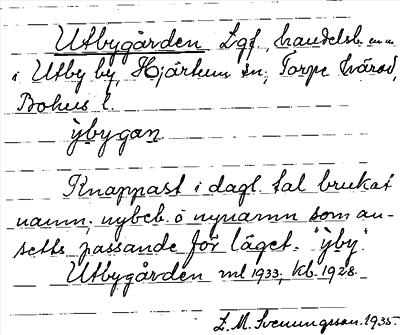 Utbygården Lgf, handelsb.
i Utby by, Hjärtum sn, Torpe härad,
Bohus l.
ýbygan
Knappast i dagl. tal brukat
namn; nybeb. o nynamn som an-
setts passande för läget. "ýby"
Utbygården ml 1933; kb. 1928.
L. M. Svenungsson. 1935.